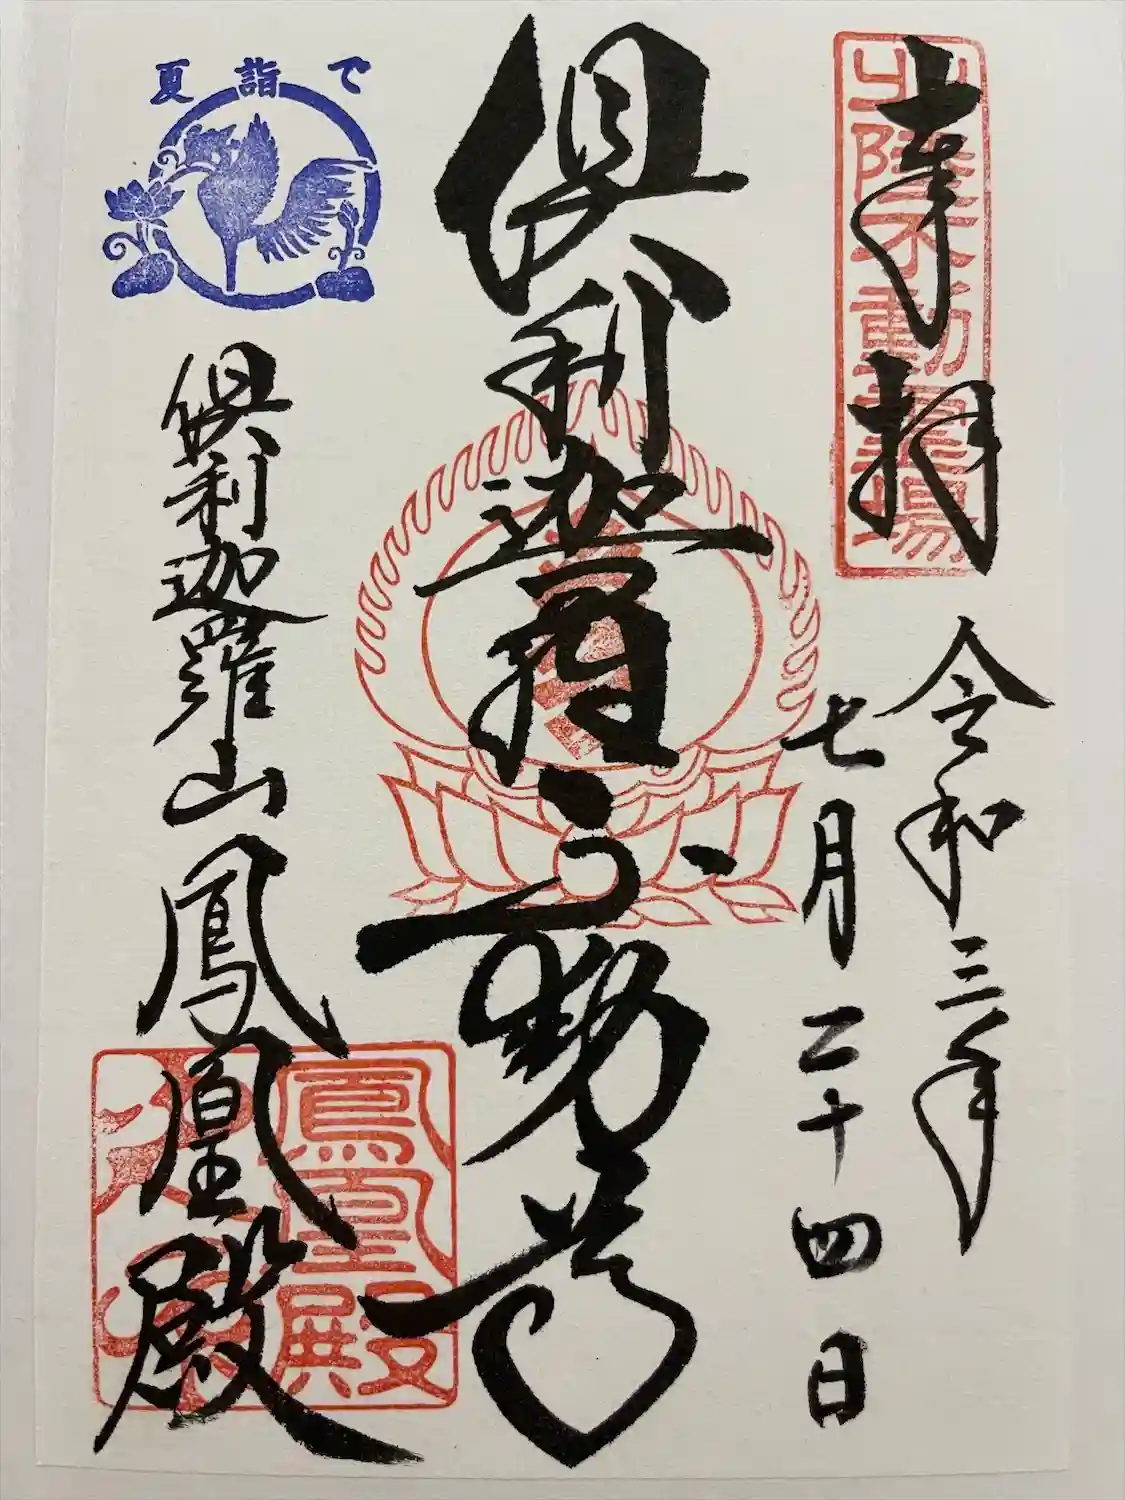 奉拝
北陸不動霊場
令和三年
七月二十四日
倶利迦羅不動尊
夏詣で
倶利迦羅山鳳凰殿
鳳凰殿